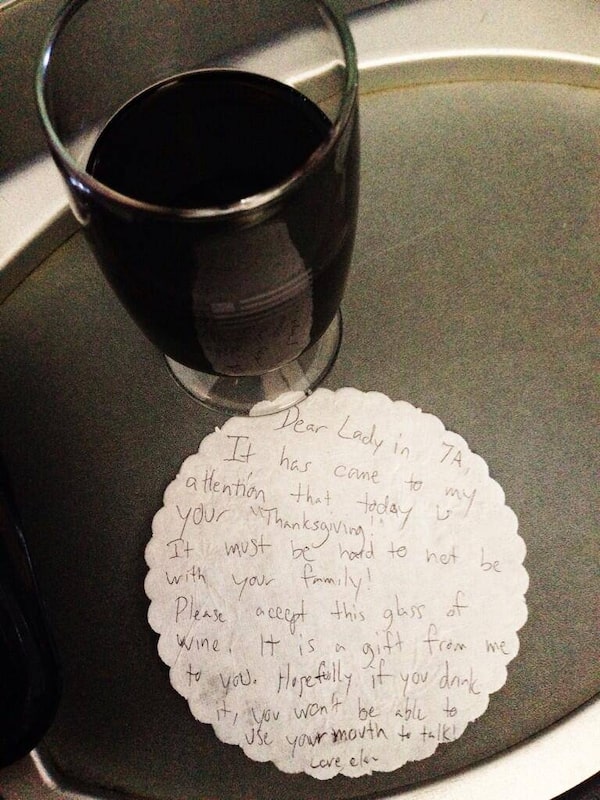 Dear Lady in 7A,
It has come to my
attention that today is
your "Thanksgiving!"
It must be hard to not be
with your family!
Please accept this glass of
wine. It is a gift from me
to you. Hopefully if you drink
it, you won't be able to
use your mouth to talk!
Love elan